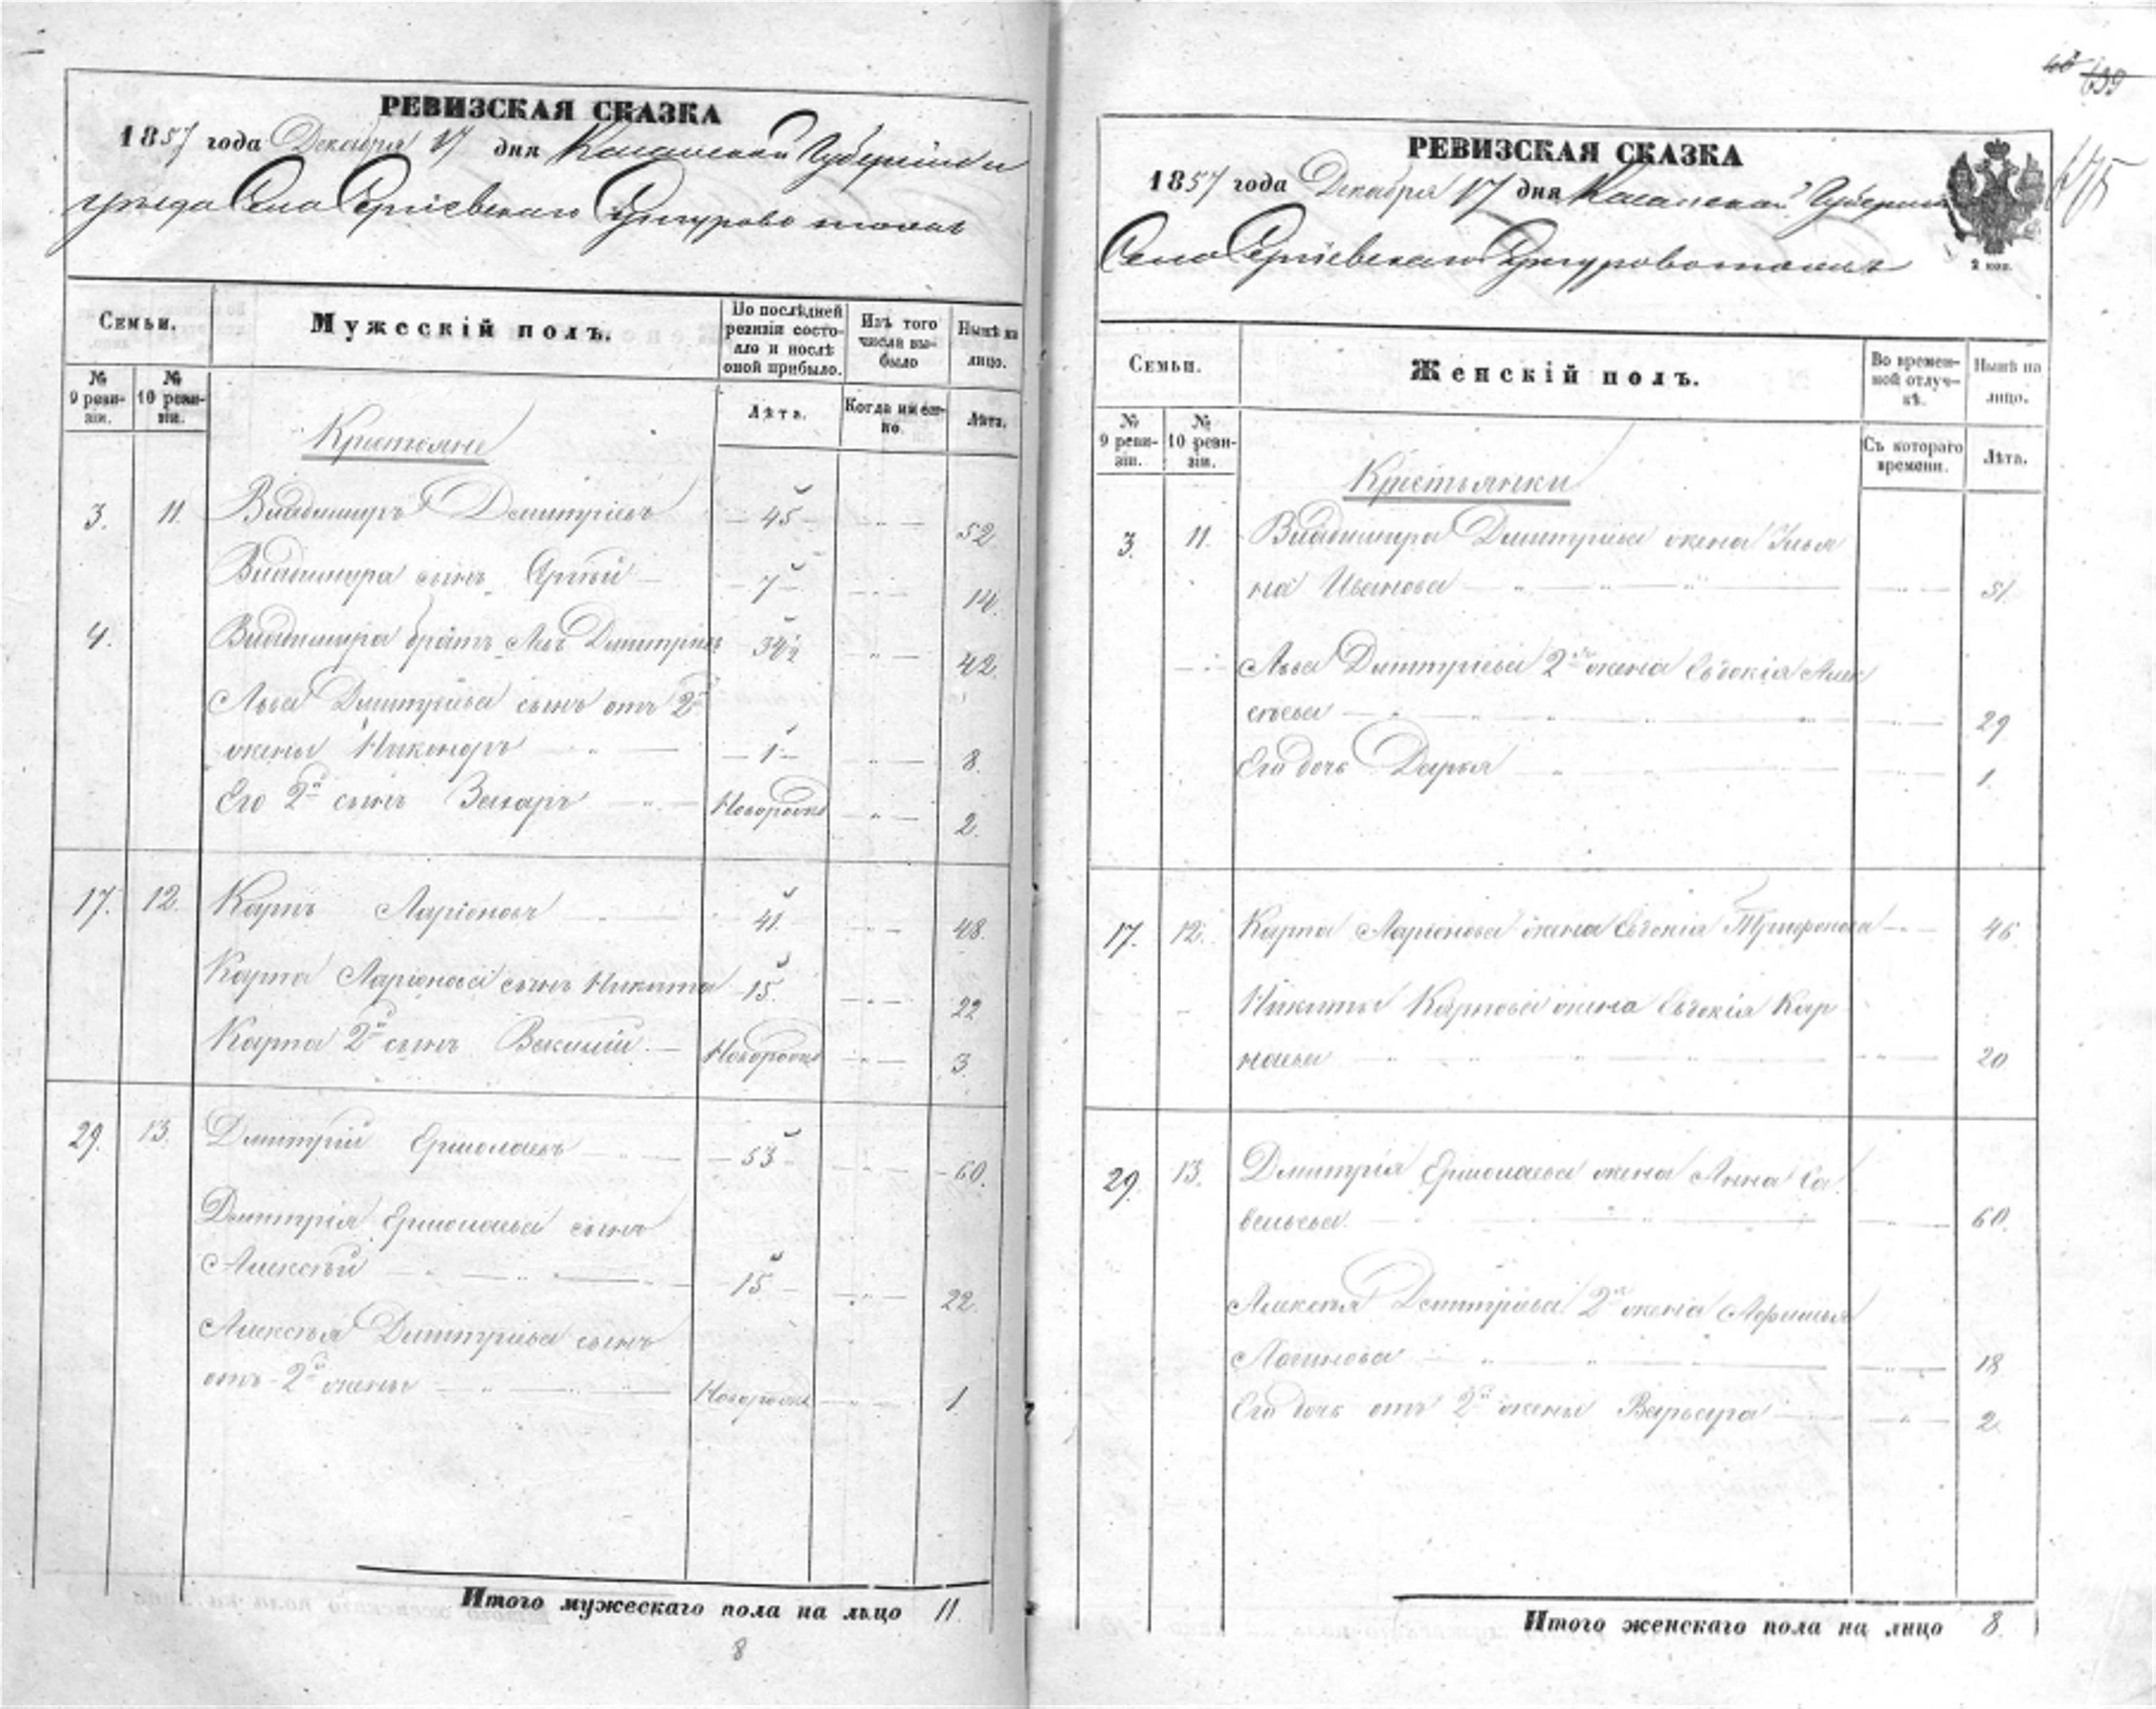 РЕВИЗСКАЯ СКАЗКА
1857 года Декабря 17 дня Казанской Губернии и
уезда Села Сергіевскаго тожъ
Семьи.
Мужескій полъ.
По послѣдней ревизіи состояло и послѣ оной прибыло.
Изъ того числа выбыло
Нынѣ на лицо.
№ 9 ревизіи.
№ 10 ревизіи.
Лѣта.
Когда именно.
Лѣта.
Крестьяне
3. 11. Владимиръ Дмитріевъ 45 52.
Владимира сынъ 7 14.
4. Владимира братъ Левъ Дмитріевъ 34½ 42.
Льва Дмитріева сынъ отъ 2й
жены Никоноръ 1 8.
Его 2й сынъ Захаръ Новорожд 2.
17. 12. Карпъ Ларіоновъ 41 48.
Карпа Ларіонова сынъ Никита 15 22
Карпа 2й сынъ Новорожд 3
29. 13. Дмитрій Ермолаевъ 53 60.
Дмитрія Ермолаева сынъ
Алексѣй 15 22.
Алексѣя Дмитріева сынъ
отъ 2й жены Новорожд 1
Итого мужескаго пола на лицо 11.
8
639
РЕВИЗСКАЯ СКАЗКА
1857 года Декабря 17 дня Казанской Губерніи
Села Сергіевскаго тожъ
2 коп.
Семьи.
Женскій полъ.
Во временной отлучкѣ.
Нынѣ на лицо.
№ 9 ревизіи.
№ 10 ревизіи.
Съ котораго времени.
Лѣта.
Крестьянки
3. 11. Владимира Дмитріева жена Улья
на Иванова 51.
Льва Дмитріева 2я жена Евдокія Алек
сѣева 29
Его дочь Дарья 1.
17. 12. Карпа Ларіонова жена Евдокія Трифонова 46
Никиты Карпова жена Евдокія Кар
наева 20
29. 13. Дмитрія Ермолаева жена Анна Са
вельева 60
Алексѣя Дмитріева 2я жена
Логинова 18
Его дочь отъ 2й жены Варвара 2
Итого женскаго пола на лицо 8.